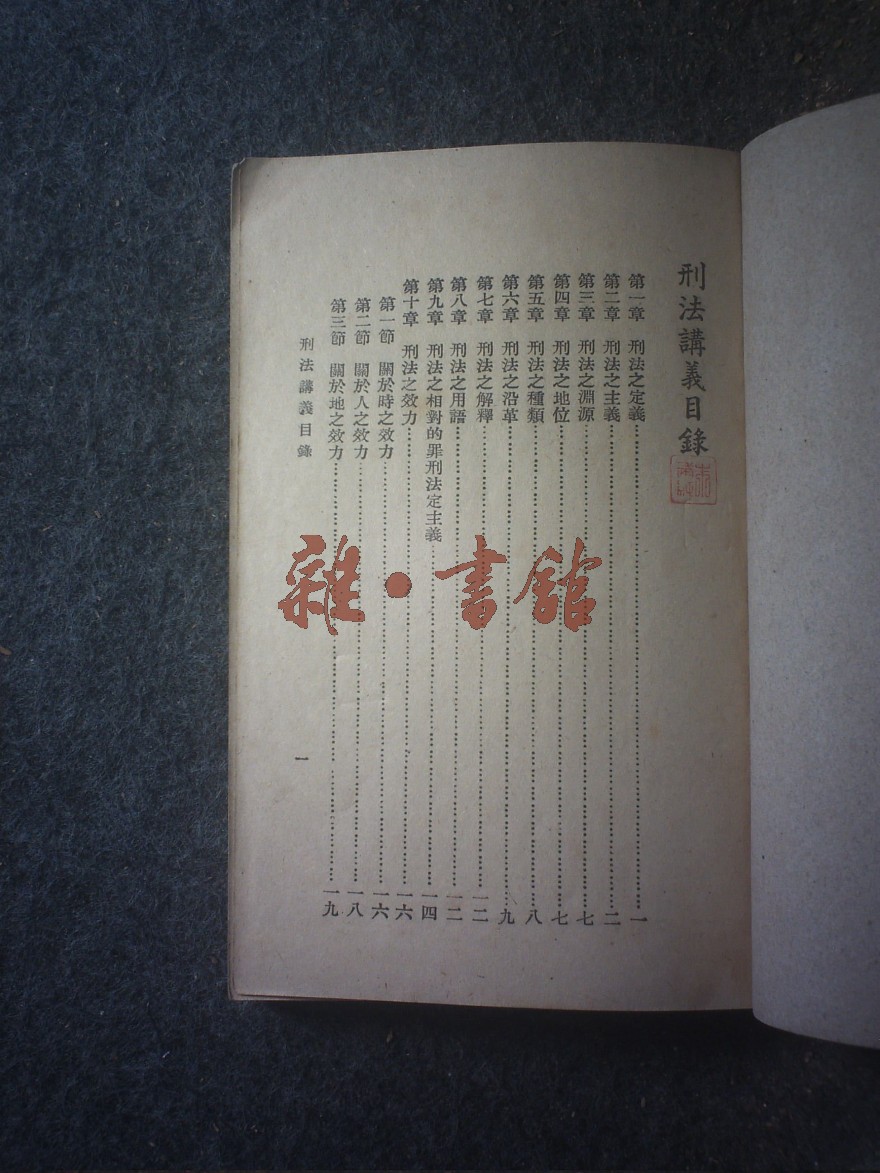 刑法講義目錄
第一章 刑法之定義……一
第二章 刑法之主義……二
第三章 刑法之淵源……七
第四章 刑法之地位……七
第五章 刑法之種類……八
第六章 刑法之沿革……九
第七章 刑法之解釋……一二
第八章 刑法之用語……一二
第九章 刑法之相對的罪刑法定主義……一四
第十章 刑法之效力……一六
第一節 關於時之效力……一六
第二節 關於人之效力……一八
第三節 關於地之效力……一九
刑法講義目錄
一
雜·書館